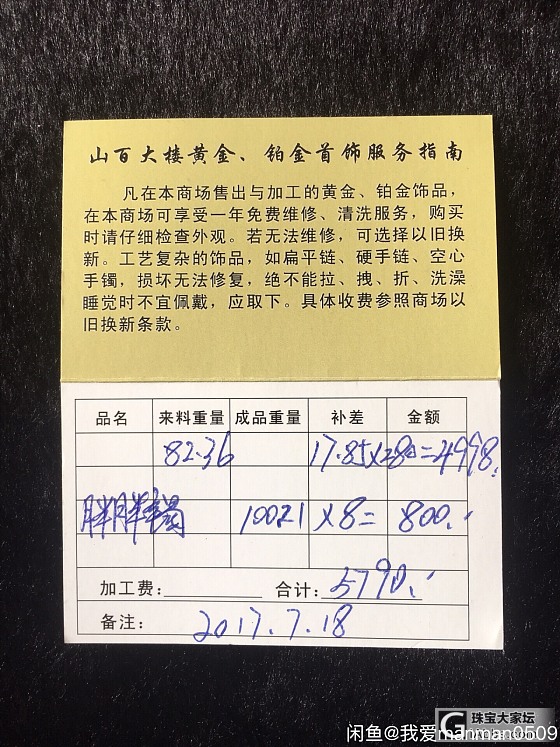 山百大楼黄金、铂金首饰服务指南
凡在本商场售出与加工的黄金、铂金饰品，
在本商场可享受一年免费维修、清洗服务，购买
时请仔细检查外观。若无法维修，可选择以旧换
新。工艺复杂的饰品，如扁平链、硬手链、空心
手镯，损坏无法修复，绝不能拉、拽、折、洗澡
睡觉时不宜佩戴，应取下。具体收费参照商场以
旧换新条款。
品名 来料重量 成品重量 补差 金额
82.36 17.85×280=4998.
胖胖手镯 100.21 ×8= 800.
加工费： 合计：5790.
备注： 2017.7.18
珠宝大家坛
闲鱼@我爱manman0509